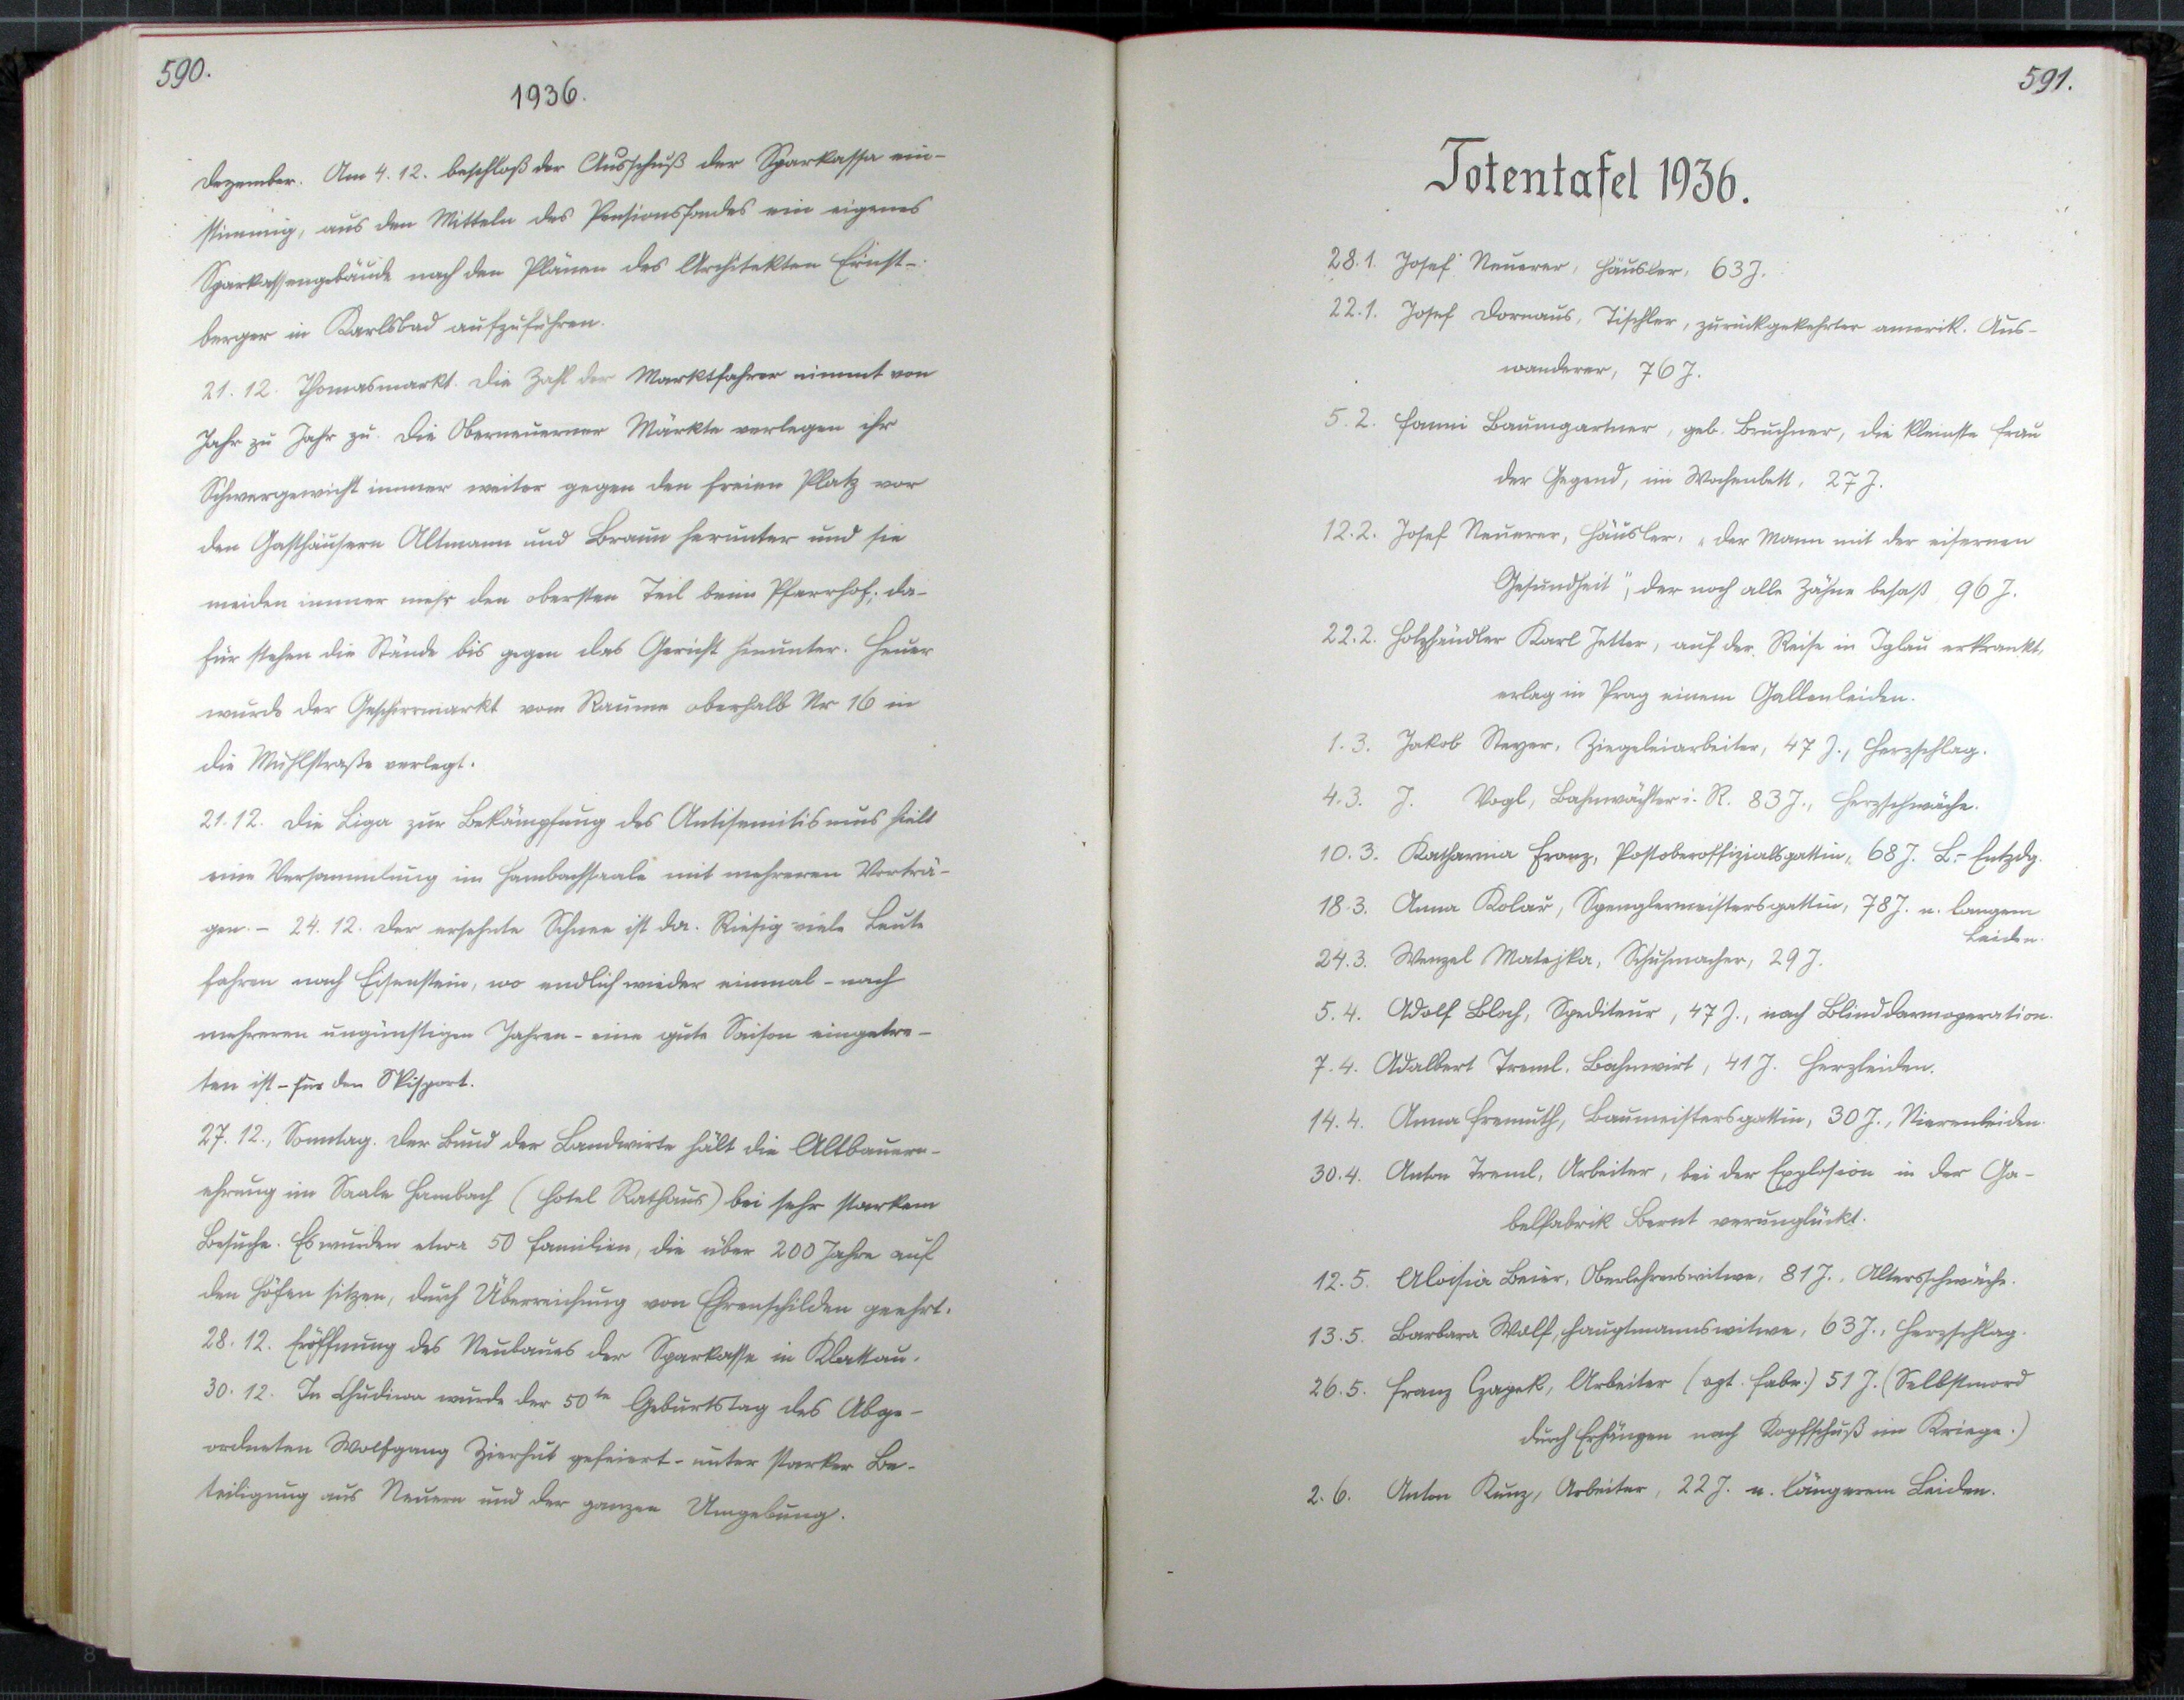 590.
1936.
Dezember. Am 4. 12. beschloß der Ausschuß der Sparkassa ein-
stimmig, aus den Mitteln des Pensionsfondes ein eigenes
Sparkassengebäude nach den Plänen des Architekten Ernst-
berger in Karlsbad aufzuführen.
21. 12. Thomasmarkt. Die Zahl der Marktfahrer nimmt von
Jahr zu Jahr zu. Die Oberneuerner Märkte verlegen ihr
Schwergewicht immer weiter gegen den freien Platz vor
den Gasthäusern Altmann und Braun herunter und sie
meiden immer mehr den obersten Teil beim Pfarrhof; da-
für stehen die Stände bis gegen das Gericht hinunter. Heuer
wurde der Geschirrmarkt vom Raume oberhalb Nr 16 in
die Mühlstraße verlegt.
21. 12. Die Liga zur Bekämpfung des Antisemitismus hielt
eine Versammlung im Hambachsaale mit mehreren Vorträ-
gen. - 24. 12. Der ersehnte Schnee ist da. Riesig viele Leute
fahren nach Eisenstein, wo endlich wieder einmal - nach
mehreren ungünstigen Jahren - eine gute Saison eingetre-
ten ist - für den Skisport.
27. 12., Sonntag. Der Bund der Landwirte hält die Altbauern-
ehrung im Saale Hambach (Hotel Rathaus) bei sehr starkem
Besuche. Es wurden etwa 50 Familien, die über 200 Jahre auf
den Höfen sitzen, durch Überreichung von Ehrenschilden geehrt.
28. 12. Eröffnung des Neubaues der Sparkasse in Klattau.
30. 12. In Chudiwa wurde der 50te Geburtstag des Abge-
ordneten Wolfgang Zierhut gefeiert - unter starker Be-
teiligung aus Neuern und der ganzen Umgebung.
591.
Totentafel 1936.
28. 1. Josef Neuerer, Häusler, 63 J.
22. 1. Josef Dornaus, Tischler, zurückgekehrter amerik. Aus-
wanderer, 76 J.
5. 2. Fanni Baumgartner, geb. Bruchner, die kleinste Frau
der Gegend, im Wochenbett, 27 J.
12. 2. Josef Neuerer, Häusler, „der Mann mit der eisernen
Gesundheit", der noch alle Zähne besaß, 96 J.
22. 2. Holzhändler Karl Jetter, auf der Reise in Iglau erkrankt,
erlag in Prag einem Gallenleiden.
1. 3. Jakob Steyer, Ziegeleiarbeiter, 47 J., Herzschlag.
4. 3. J. Vogl, Bahnwächter i. R. 83 J., Herzschwäche.
10. 3. Katharina Franz, Postoberoffizialsgattin, 68 J. L.-Entzdg.
18. 3. Anna Kolar, Spenglermeistersgattin, 78 J. n. langem
Leiden.
24. 3. Wenzel Matejka, Schuhmacher, 29 J.
5. 4. Adolf Bloch, Spediteur, 47 J., nach Blinddarmoperation.
7. 4. Adalbert Treml, Bahnwirt, 41 J. Herzleiden.
14. 4. Anna Fremuth, Baumeistersgattin, 30 J., Nierenleiden.
30. 4. Anton Treml, Arbeiter, bei der Explosion in der Ga-
belfabrik Bernt verunglückt.
12. 5. Aloisia Beier, Oberlehrerswitwe, 81 J., Altersschwäche.
13. 5. Barbara Wolf, Hauptmannswitwe, 63 J., Herzschlag.
26. 5. Franz Czapek, Arbeiter (opt. Fabr.) 51 J. (Selbstmord
durch Erhängen nach Kopfschuß im Kriege.)
2. 6. Anton Kunz, Arbeiter, 22 J. n. längerem Leiden.